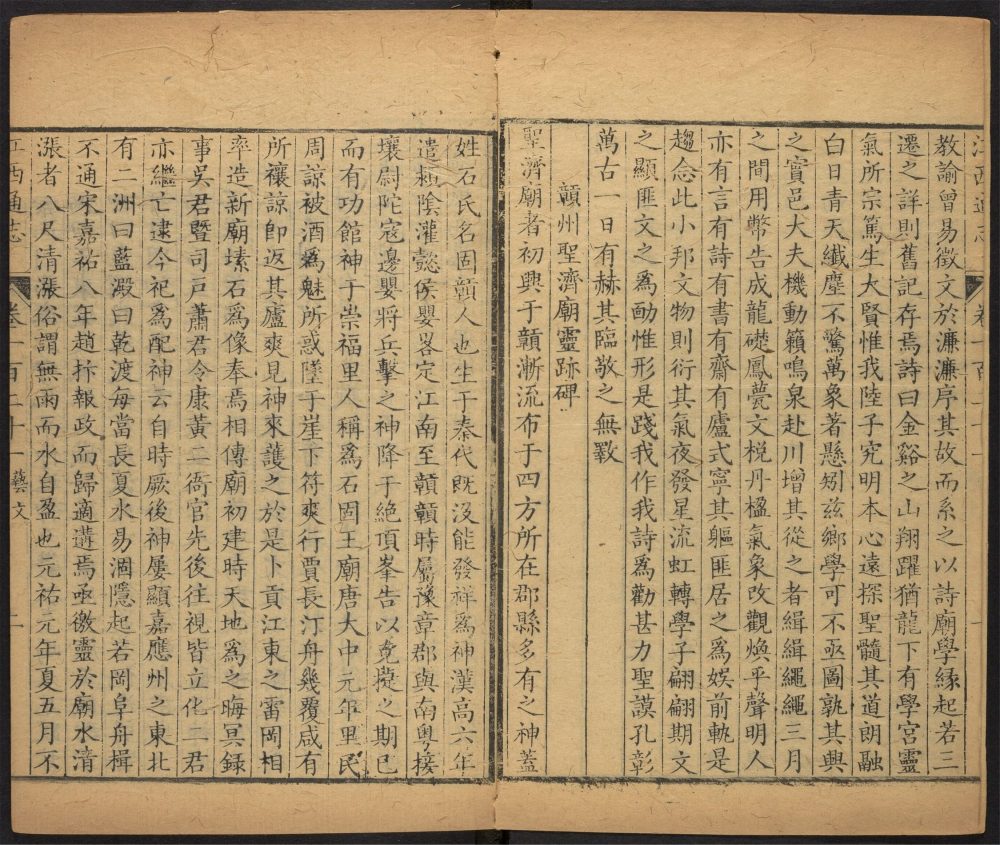 江西通志 卷一百二十一 一
教諭曾易徵文於濂濂序其故而系之以詩廟學緣起若三
遷之詳則舊記存焉詩曰金谿之山翔躍猶龍下有學宮靈
氣所宗篤生大賢惟我陸子究明本心遠探聖髓其道朗融
白日青天纖塵不驚萬象著懸矧兹鄉學可不亟圖孰其興
之實邑大夫機動籟鳴泉赴川增其從之者緝緝繩繩三月
之間用幣告成龍礎鳳甍文棁丹楹氣象改觀煥乎聲明人
亦有言有詩有書有齋有廬式寧其軀匪居之為娛前軌是
趨念此小邦文物則衍其氣夜發星流虹轉學子翩翩期文
之顯匪文之為酗惟形是踐我作我詩為勸甚力聖謨孔彰
萬古一日有赫其臨敬之無斁
贛州聖濟廟靈跡碑
聖濟廟者初興于贛漸流布于四方所在郡縣多有之神蓋
姓石氏名固贛人也生于秦代既沒能發祥為神漢高六年
遣潁陰灌懿侯嬰畧定江南至贛贛時屬豫章郡與南粵接
壤尉陀寇邊嬰將兵擊之神降于絶頂峯告以克捷之期已
而有功館神于崇福里人稱為石固王廟唐大中元年里民
周諒被酒為魅所惑墜于崖下符爽行賈長汀舟幾覆咸有
所禳諒卽返其廬爽見神來護之於是卜貢江東之雷岡相
率造新廟塐石為像奉焉相傳廟初建時天地為之晦冥録
事吳君暨司戶蕭君令康黃二衙官先後往視皆立化二君
亦繼亡逮今祀為配神云自時厥後神屢顯嘉應州之東北
有二洲曰藍澱曰乾渡每當長夏水易涸隱起若岡阜舟楫
不通宋嘉祐八年趙抃報政而歸適遘焉亟徼靈於廟水淸
漲者八尺清漲俗謂無雨而水自盈也元祐元年夏五月不
江西通志 卷一百二十一 藝文 二